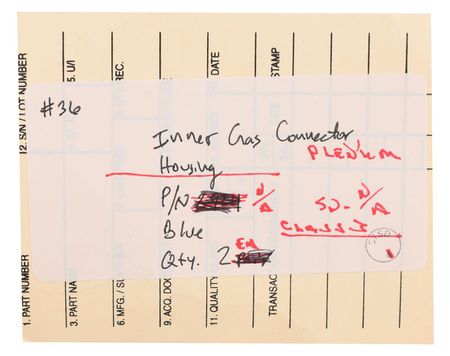 #36
Inner Gas Connector
Housing PLENUM
P/N N/A SN- N/A
Blue CLASS 3
Qty. 2 EA
12. S/N / LOT NUMBER
1. PART NUMBER
5. U/I
3. PART NA
REC.
6. MFG. / SU
9. ACQ. DOC
DATE
11. QUALITY
STAMP
TRANSAC